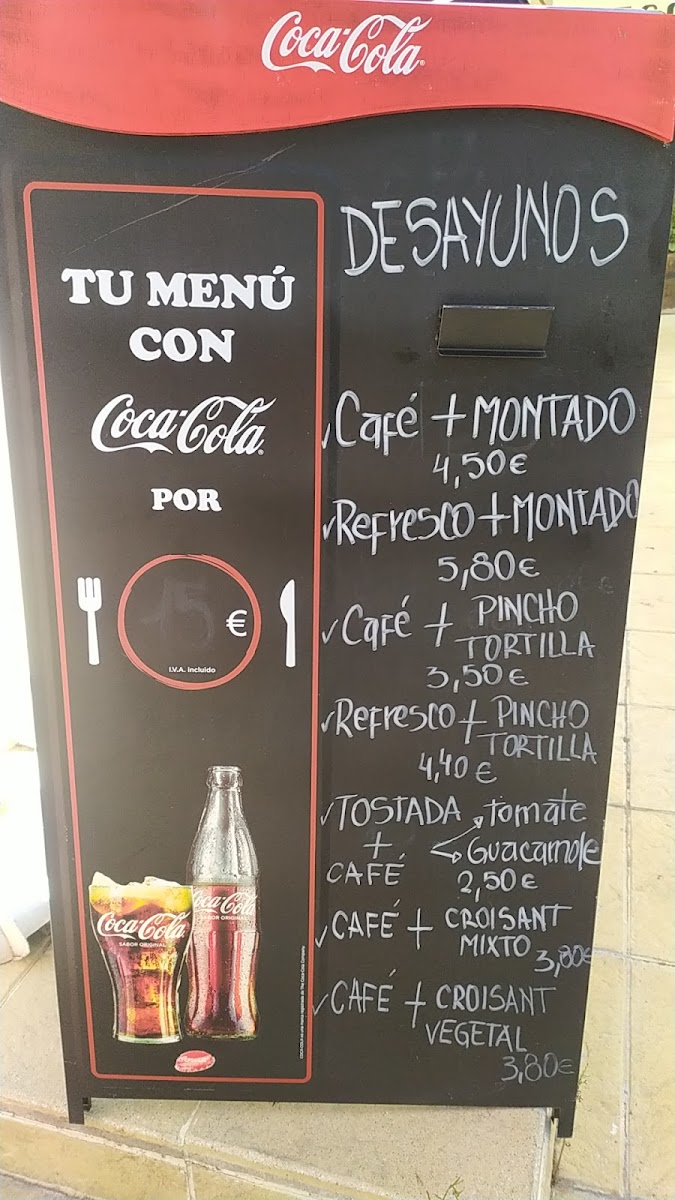 Coca-Cola
TU MENÚ
CON
Coca-Cola
POR
15 €
I.V.A. incluido
Coca-Cola
SABOR ORIGINAL
Coca-Cola
SABOR ORIGINAL
DESAYUNOS
Café + MONTADO
4,50€
Refresco + MONTADO
5,80€
Café + PINCHO
TORTILLA
3,50€
Refresco + PINCHO
TORTILLA
4,40€
TOSTADA tomate
+ Guacamole
CAFÉ 2,50€
CAFÉ + CROISANT
MIXTO 3,80€
CAFÉ + CROISANT
VEGETAL
3,80€